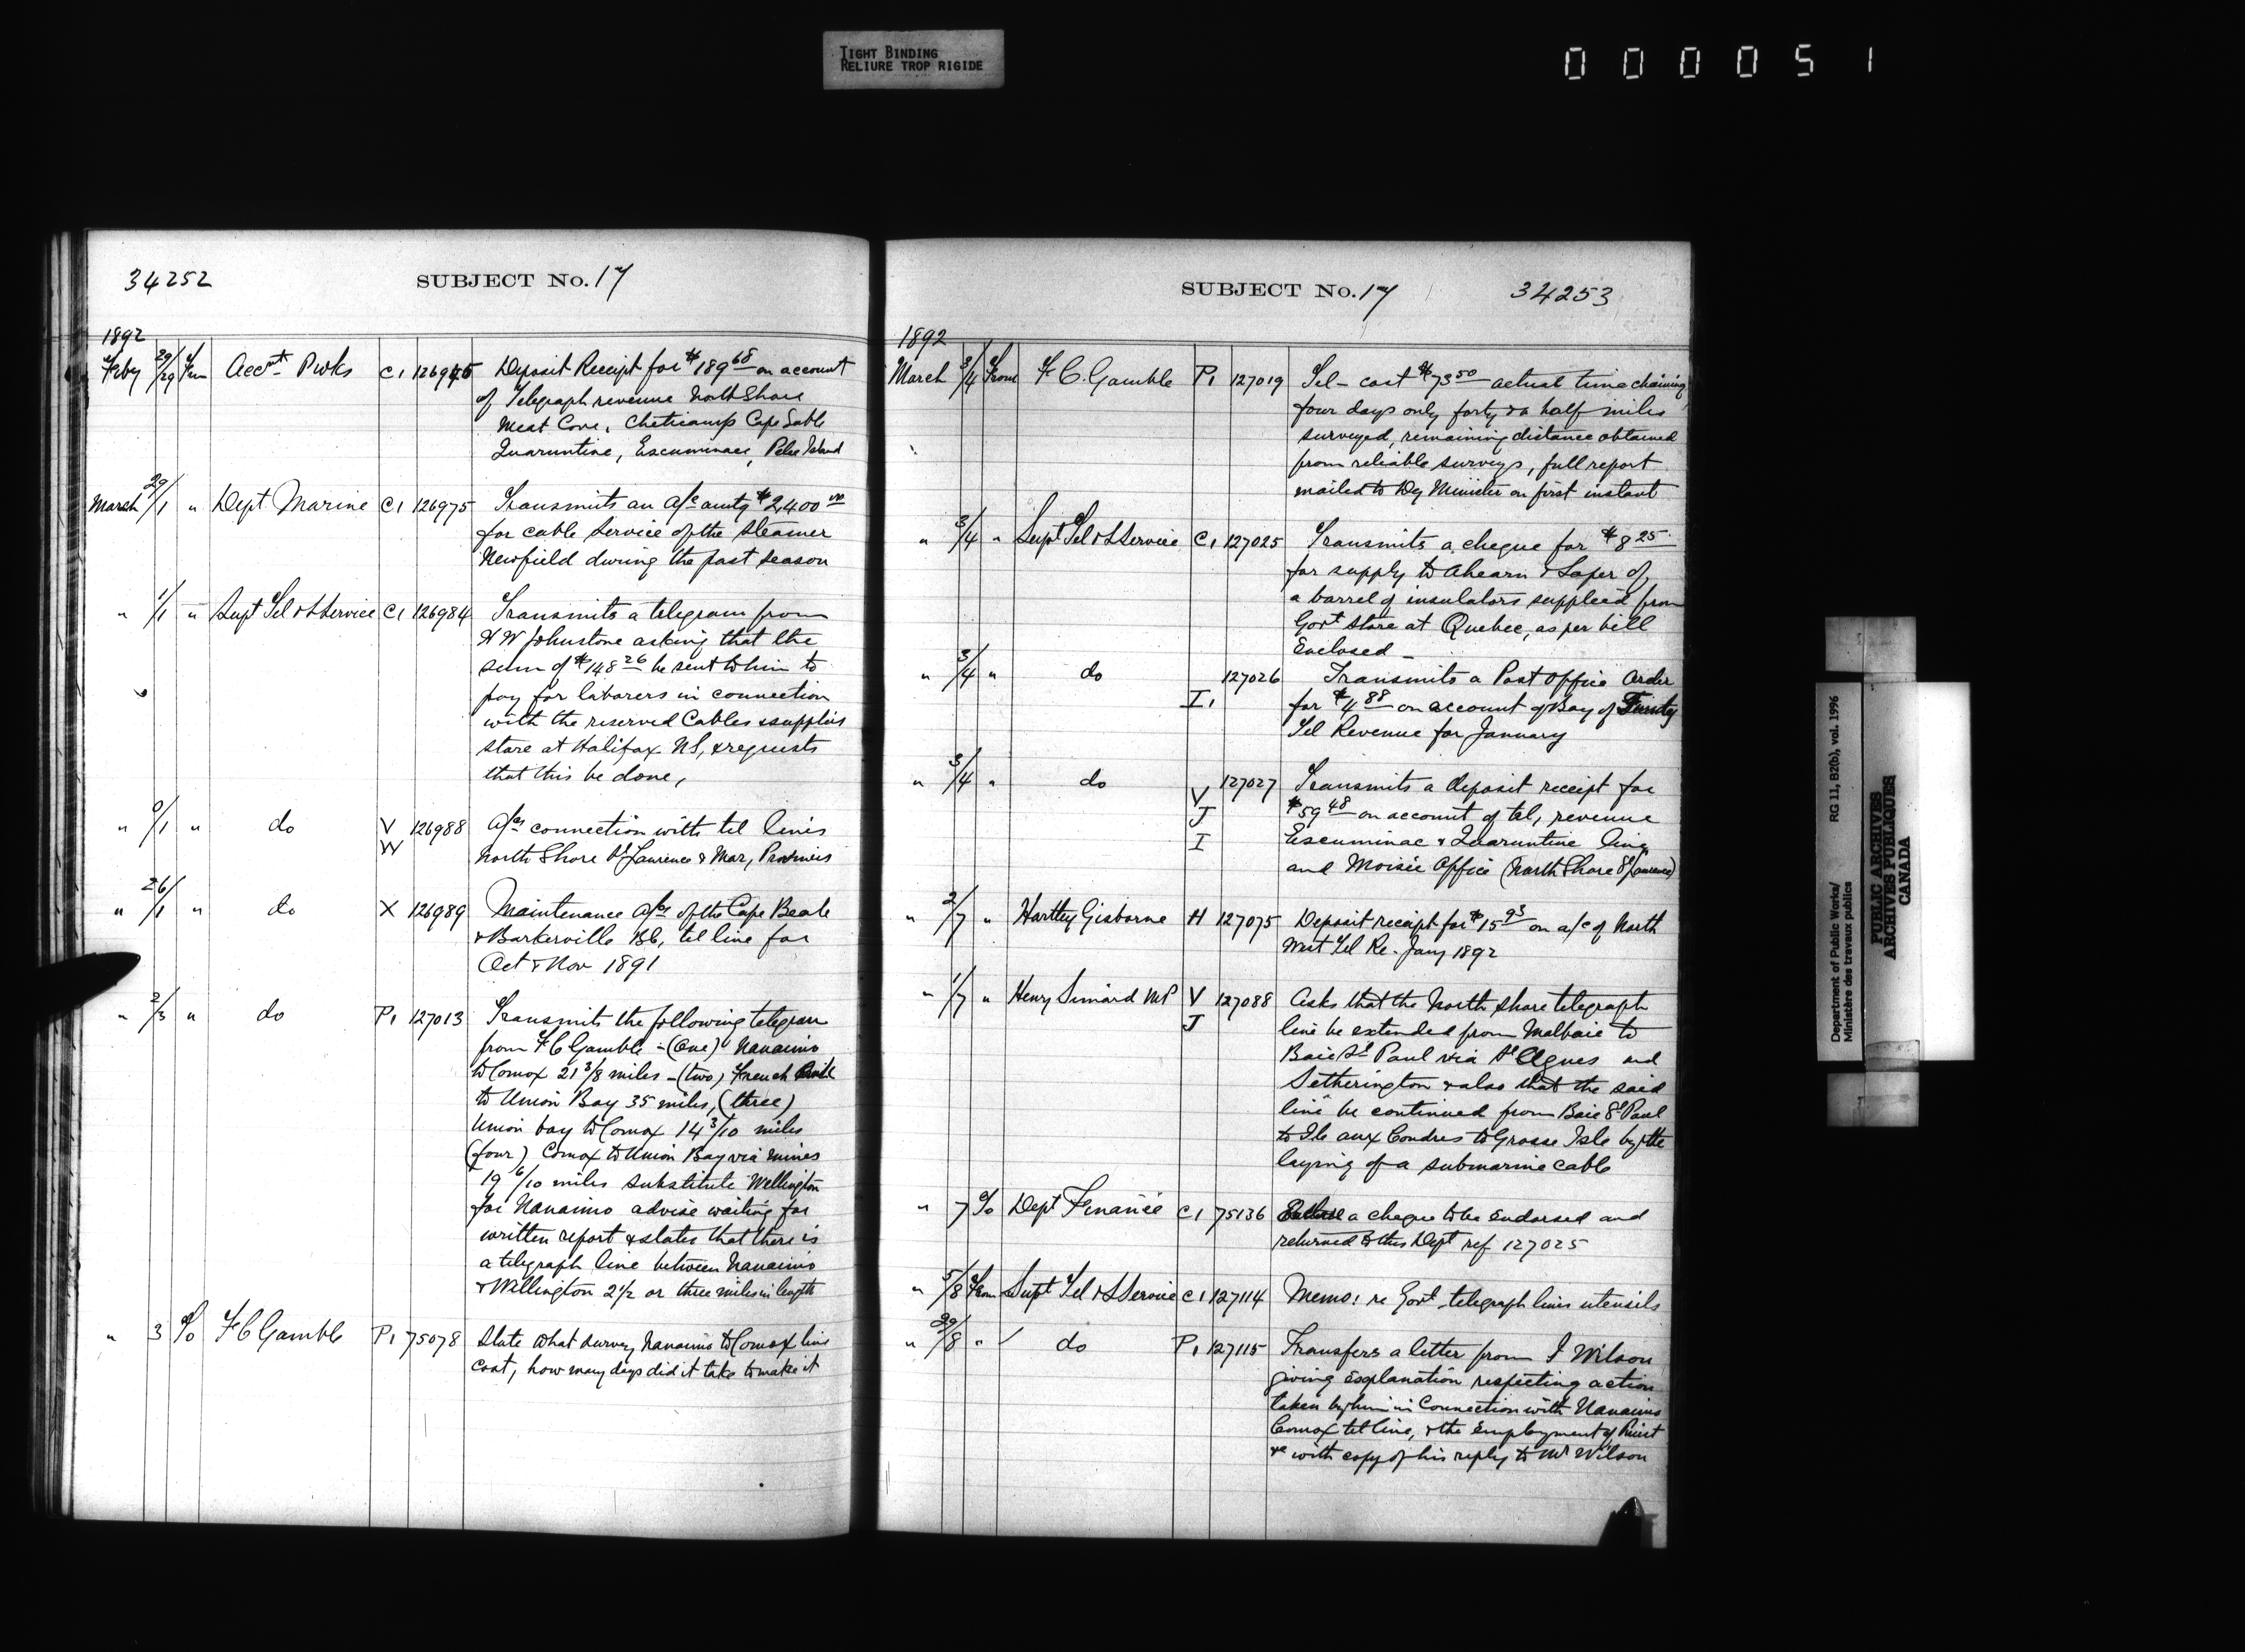 TIGHT BINDING
RELIURE TROP RIGIDE
000051
34252
SUBJECT No. 17
1892
Feby 29/29 Frm Acct Pwks C1 126945 Deposit Receipt for $189 68 on account
of Telegraph revenue North Shore
Meat Cove, Cheticamp Cape Sable
Quaruntine, Escuminac, Pelee Island
March 29/1 " Dept Marine C1 126975 Transmits an a/c amtg $2,400 00
for cable service of the steamer
Newfield during the past season
" 1/1 " Supt Tel & S Service C1 126984 Transmits a telegram from
H W Johnstone asking that the
sum of $148 26 be sent to him to
pay for laborers in connection
with the reserved Cables & supplies
store at Halifax NS, & requests
that this be done,
" 0/1 " do V 126988 a/cs connection with tel lines
W North Shore St Laurence & Mar, Provinces
" 26/1 " do X 126989 Maintenance a/cs of the Cape Beale
& Barkerville BC, tel line for
Oct & Nov 1891
" 2/3 " do P1 127013 Transmits the following telegram
from F C Gamble - (One) Nanaimo
to Comox 21 3/8 miles - (two) French
to Union Bay 35 miles, (three)
Union bay to Comox 14 3/10 miles
(four) Comox to Union Bay via mines
19 6/10 miles substitute Wellington
for Nanaimo advise waiting for
written report & states that there is
a telegraph line between Nanaimo
& Wellington 2 1/2 or three miles in length
" 3 To F C Gamble P1 75078 State what survey Nanaimo to Comox line
cost, how many days did it take to make it
SUBJECT No. 17
34253
1892
March 3/4 From F C. Gamble P1 127019 Tel- cost $73 50 actual time chaining
four days only forty & a half miles
surveyed, remaining distance obtained
from reliable surveys, full report
mailed to Dy Minister on first instant
" 3/4 " Supt Tel & S Service C1 127025 Transmits a cheque for $8 25
for supply to Ahearn & Soper of
a barrel of insulators supplied from
Govt store at Quebec, as per bill
Enclosed
" 3/4 " do 127026 Transmits a Post Office Order
I1 for $4 88 on account of Bay of
Tel Revenue for January
" 3/4 " do 127027 Transmits a deposit receipt for
V
J $59 48 on account of tel, revenue
I Escuminac & Quaruntine line
and Moisie Office (North Shore St Laurence)
" 2/7 " Hartley Gisborne H 127075 Deposit receipt for $15 93 on a/c of North
West Tel Re. Jany 1892
" 1/7 " Henry Simard MP V 127088 Asks that the North Shore telegraph
J line be extended from Malbaie to
Baie St Paul via St Agnes and
Setherington & also that the said
line be continued from Baie St Paul
to Ile aux Coudres to Grosse Isle by the
laying of a submarine cable
" 7 To Dept Finance C1 75136 a cheque to be Endorsed and
returned to this Dept ref 127025
" 5/8 From Supt Tel & S Service C1 127114 Memo: re Govt telegraph lines utensils
" 29/8 " do P1 127115 Transfers a letter from J Wilson
giving explanation respecting action
taken by him in Connection with Nanaimo
Comox tel line, & the Employment of
&c with copy of his reply to Mr Wilson
Department of Public Works/
Ministère des travaux publics
RG 11, B2(b), vol. 1996
PUBLIC ARCHIVES
ARCHIVES PUBLIQUES
CANADA